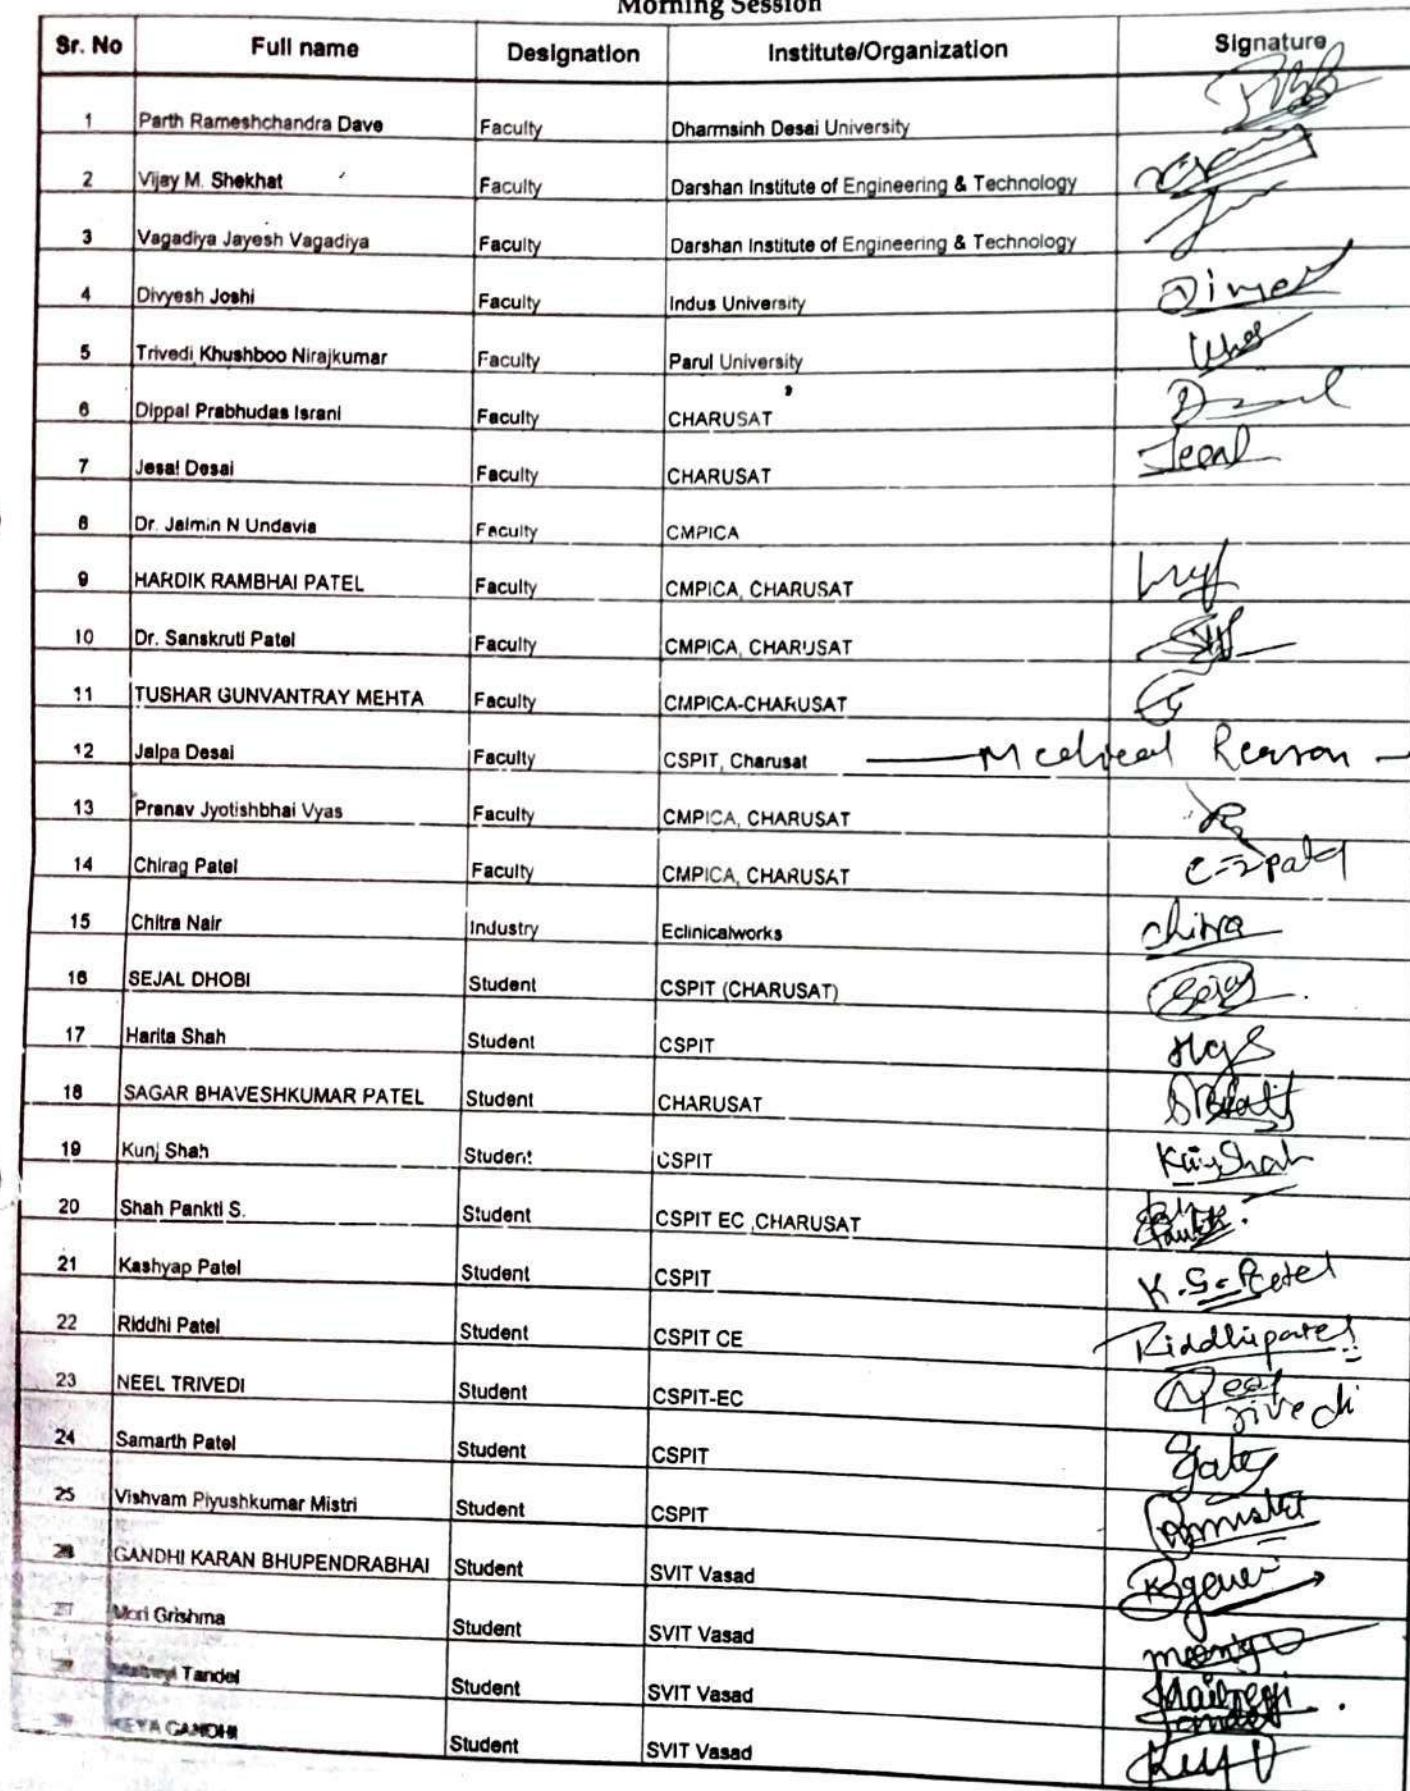 Morning Session
Sr. No Full name Designation Institute/Organization Signature
1 Parth Rameshchandra Dave Faculty Dharmsinh Desai University
2 Vijay M. Shekhat Faculty Darshan Institute of Engineering & Technology
3 Vagadiya Jayesh Vagadiya Faculty Darshan Institute of Engineering & Technology
4 Divyesh Joshi Faculty Indus University
5 Trivedi Khushboo Nirajkumar Faculty Parul University
6 Dippal Prabhudas Israni Faculty CHARUSAT
7 Jesal Desai Faculty CHARUSAT
8 Dr. Jalmin N Undavia Faculty CMPICA
9 HARDIK RAMBHAI PATEL Faculty CMPICA, CHARUSAT
10 Dr. Sanskruti Patel Faculty CMPICA, CHARUSAT
11 TUSHAR GUNVANTRAY MEHTA Faculty CMPICA-CHARUSAT
12 Jalpa Desai Faculty CSPIT, Charusat Medical Reason
13 Pranav Jyotishbhai Vyas Faculty CMPICA, CHARUSAT
14 Chirag Patel Faculty CMPICA, CHARUSAT
15 Chitra Nair Industry Eclinicalworks chitra
16 SEJAL DHOBI Student CSPIT (CHARUSAT)
17 Harita Shah Student CSPIT
18 SAGAR BHAVESHKUMAR PATEL Student CHARUSAT
19 Kunj Shah Student CSPIT
20 Shah Pankti S. Student CSPIT EC ,CHARUSAT
21 Kashyap Patel Student CSPIT K.S. Patel
22 Riddhi Patel Student CSPIT CE Riddhipatel
23 NEEL TRIVEDI Student CSPIT-EC
24 Samarth Patel Student CSPIT
25 Vishvam Piyushkumar Mistri Student CSPIT
GANDHI KARAN BHUPENDRABHAI Student SVIT Vasad
Mori Grishma Student SVIT Vasad
Tandel Student SVIT Vasad
KEYA GANDHI Student SVIT Vasad